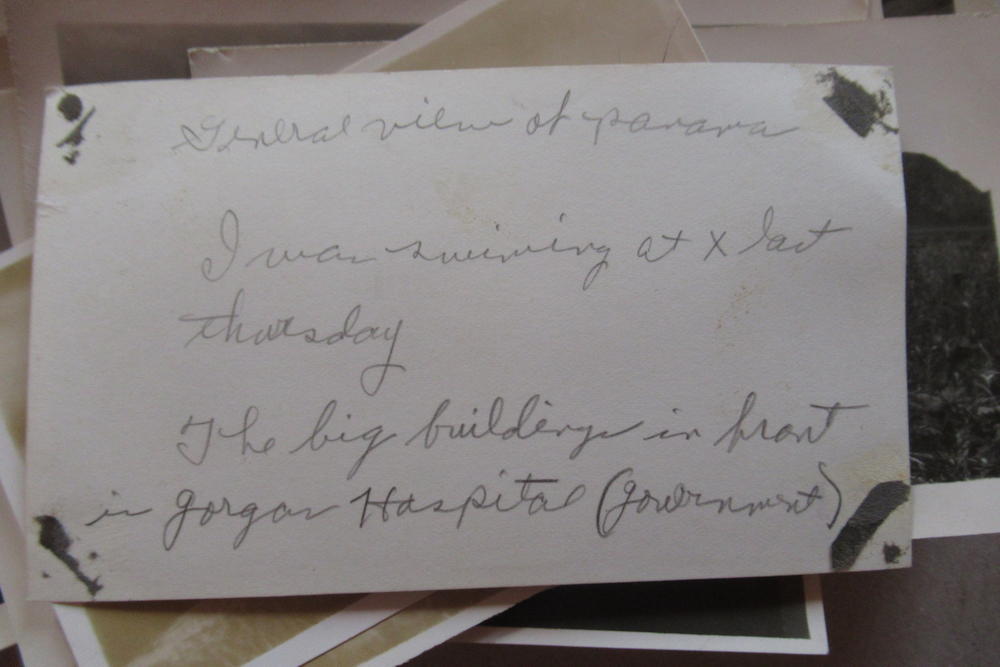 General view of panama
I was swiming at X last
thursday
The big buildings in front
is gorgas Hospital (government)